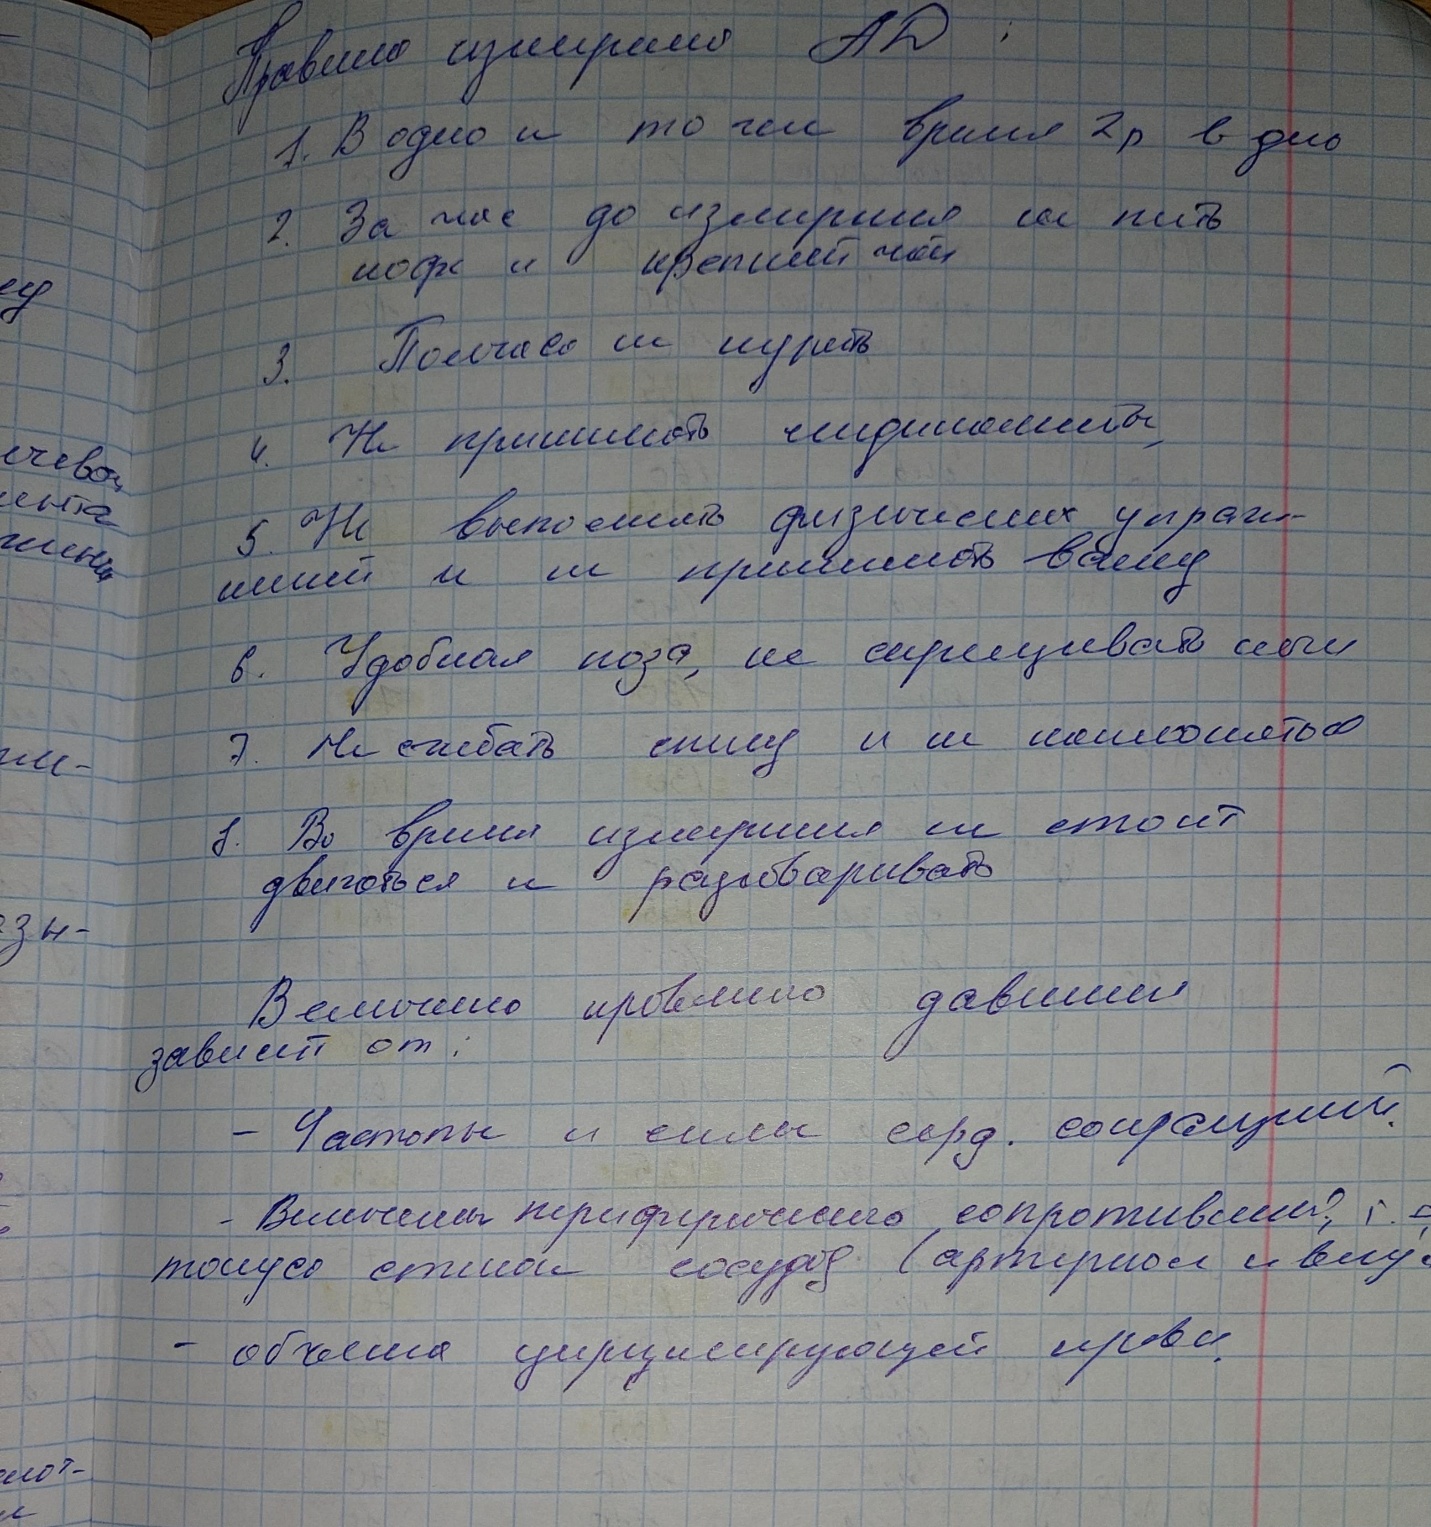 Правила измерения АД:
1. В одно и то же время 2р в день
2. За час до измерения не пить
кофе и крепкий чай
3. Полчаса не курить
4. Не принимать медикаменты,
5. Не выполнять физических упраж-
нений и не принимать ванну
6. Удобная поза, не скрещивать ноги
7. Не сгибать спину и не наклоняться
8. Во время измерения не стоит
двигаться и разговаривать
Величина кровяного давления
зависит от:
- Частоты и силы серд. сокращений.
- Величины периферического сопротивления, т.е
тонуса стенок сосудов (артериол и вену
- объема циркулирующей крови.